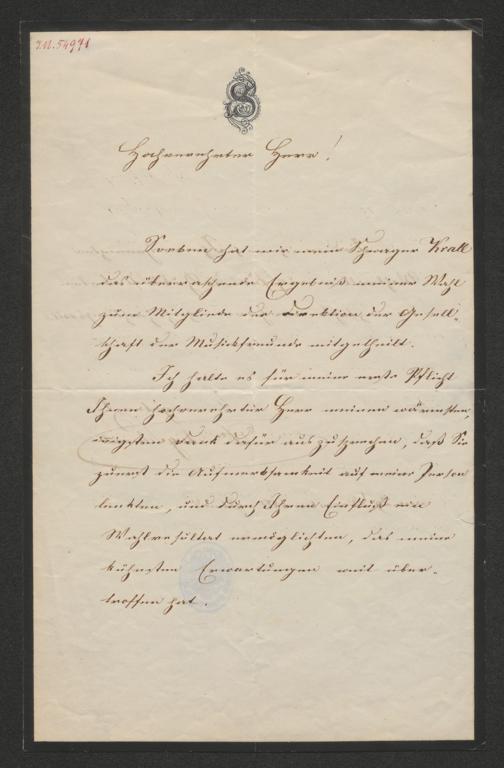 I.N. 54971
Hochverehrter Herr!
Soeben hat mir mein Schwager Krall
das überraschende Ergebniß meiner Wahl
zum Mitgliede der Direktion der Gesell-
schaft der Musikfreunde mitgetheilt.
Ich halte es für meine erste Pflicht
Ihnen hochverehrter Herr meinen wärmsten,
innigsten Dank dafür auszusprechen, daß Sie
zuerst die Aufmerksamkeit auf meine Person
lenkten, und durch Ihren Einfluß ein
Wahlresultat ermöglichten, das meine
kühnsten Erwartungen weit über-
troffen hat.